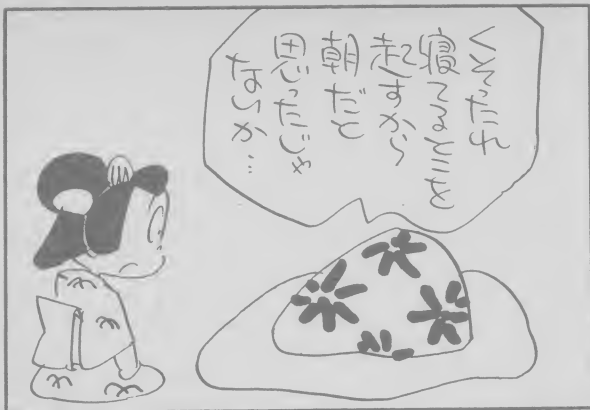 くそったれ
寝てるとこを
起すから
朝だと
思ったじゃ
ないか…